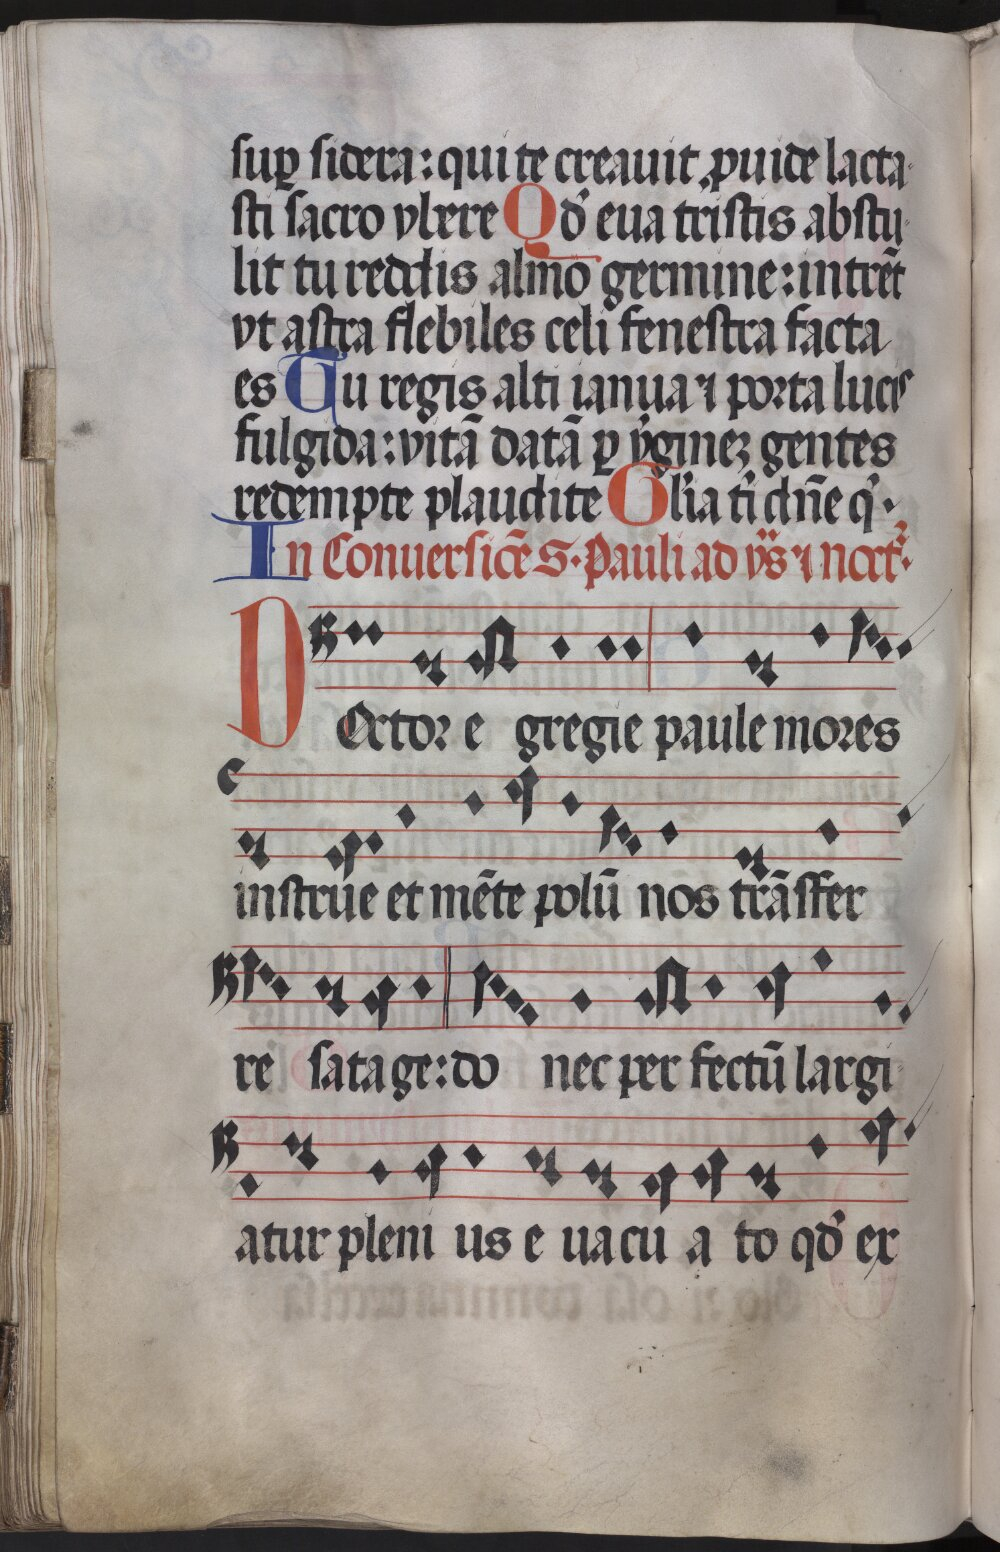 sup̱ sidera: qui te creauit ꝓuide lacta-
sti sacro vbere Qd̛ eua tristis abstu-
lit tu reddis almo germine: intrēt
vt astra flebiles celi fenestra facta
es Tu regis alti ianua ⁊ porta lucis
fulgida: vitā datā ꝑ v̛gineꝫ gentes
redempte plaudite Gl̛ia ti̛ dn̄e q̛.
In Conuersiōe S. Pauli ad v̛s ⁊ noct̛.
Doctor e gregie paule mores
instrue et mēte polū nos trāsfer
re satage: do nec per fectū largi
atur pleni us e uacu a to qd̛ ex